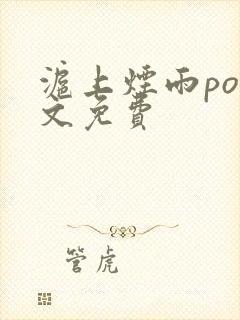 滬上煙雨po
文免費
管虎